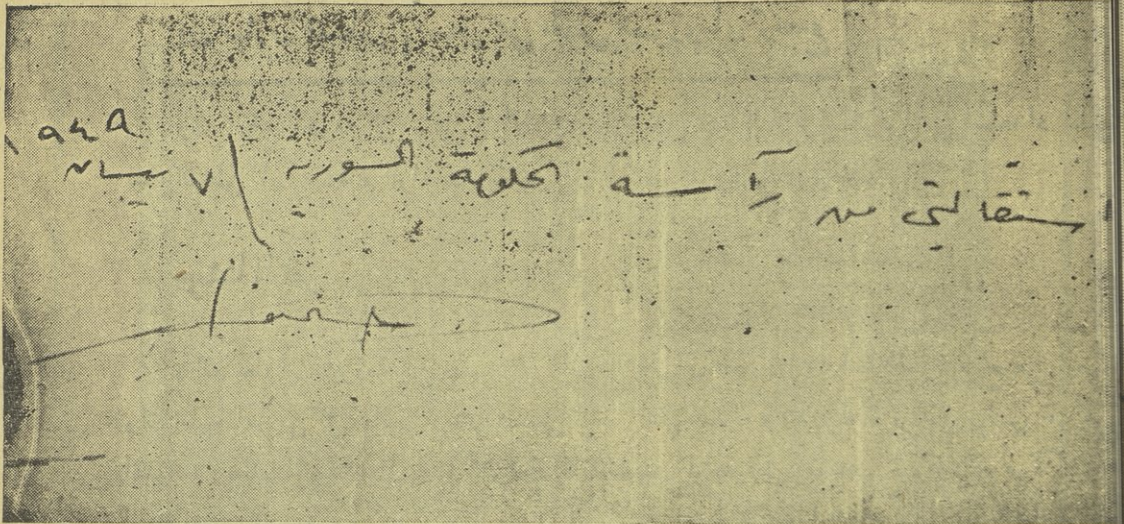 استقالتي من رآسة الحكومة السورية / ٧ نيسان ١٩٤٩